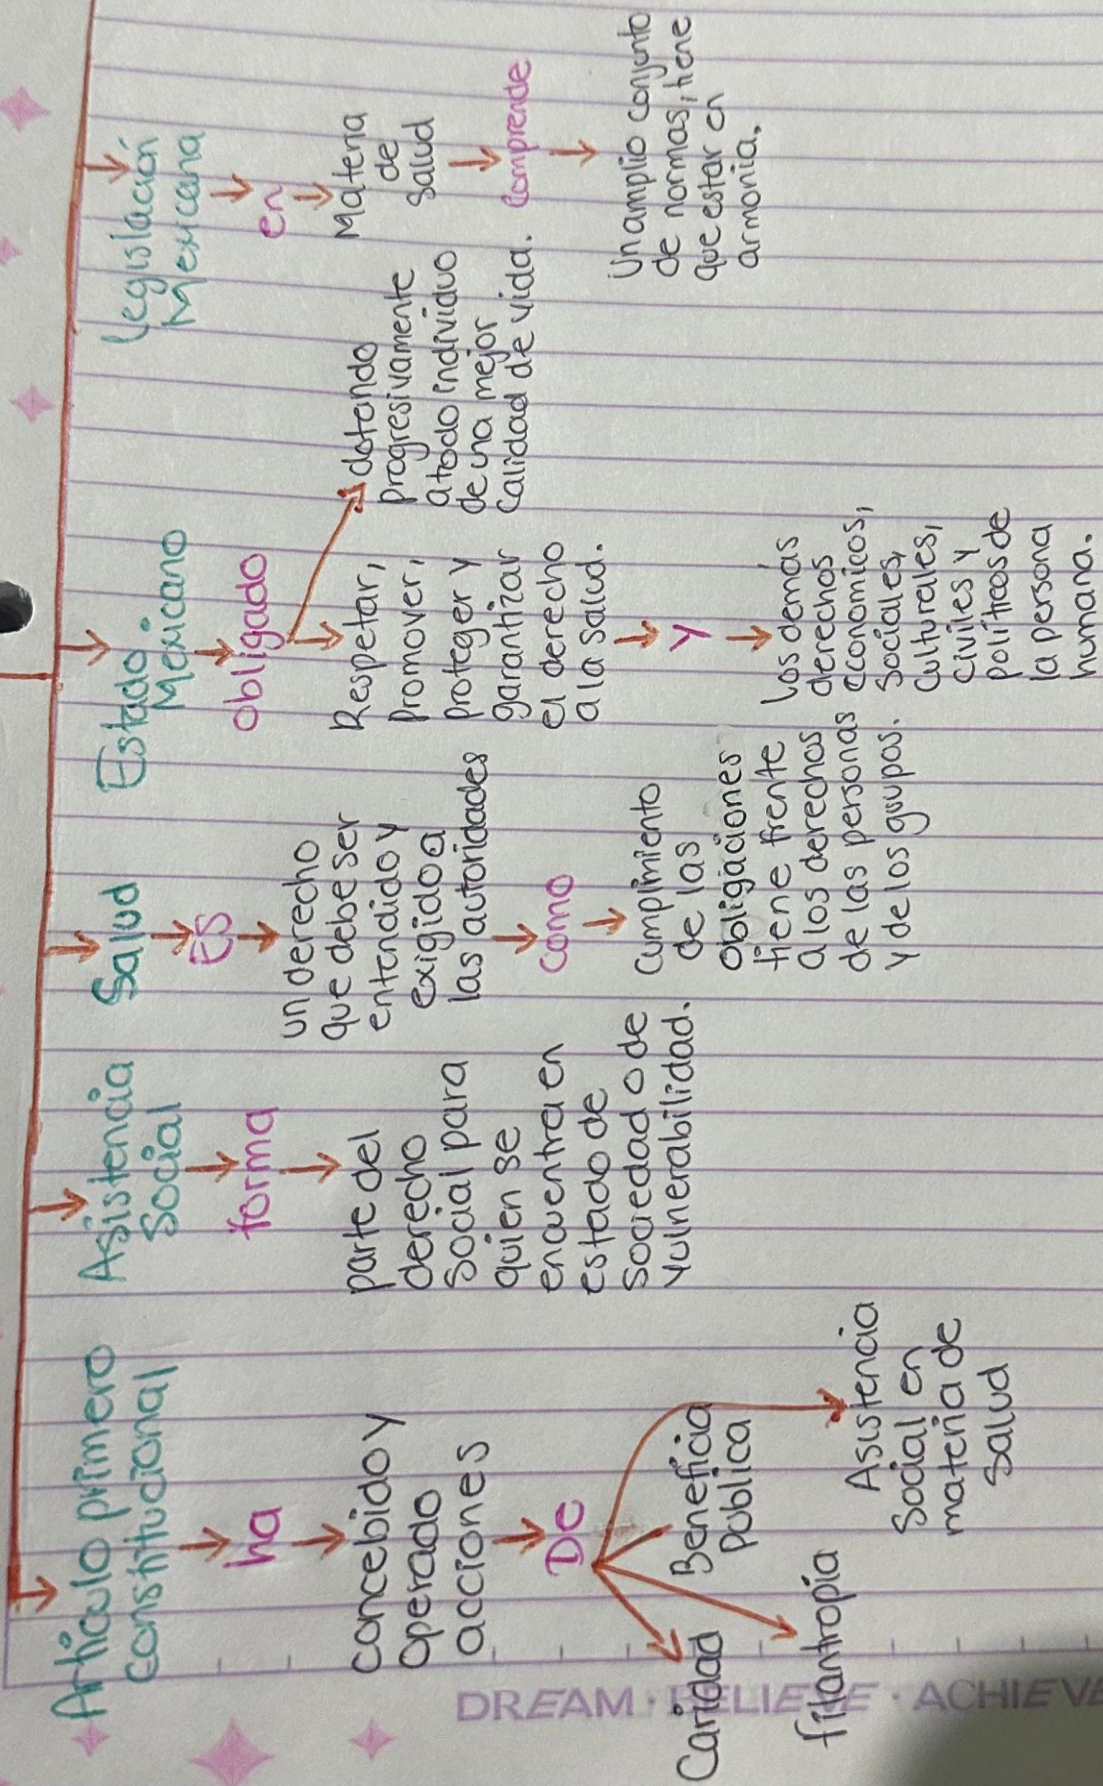 Artículo primero
constitucional
ha
concebido y
operado
acciones
De
Caridad
filantropía
Beneficia
Publica
Asistencia
Social en
materia de
Salud
Asistencia
Social
forma
parte del
derecho
Social para
quien se
encuentra en
estado de
Sociedad o de
vulnerabilidad.
Salud
Es
un derecho
que debe ser
entendido y
exigido a
las autoridades
como
cumplimiento
de las
obligaciones
tiene frente
a los derechos
de las personas
y de los grupos.
Estado
Mexicano
obligado
Respetar,
promover,
proteger y
garantizar
el derecho
a la salud.
y
los demás
derechos
económicos,
Sociales,
culturales,
civiles y
políticos de
la persona
humana.
dotando
progresivamente
a todo individuo
de una mejor
Calidad de vida.
legislación
Mexicana
en
Materia
de
Salud
Comprende
Un amplio conjunto
de normas, tiene
que estar en
armonia.
DREAM · BELIEVE · ACHIEVE